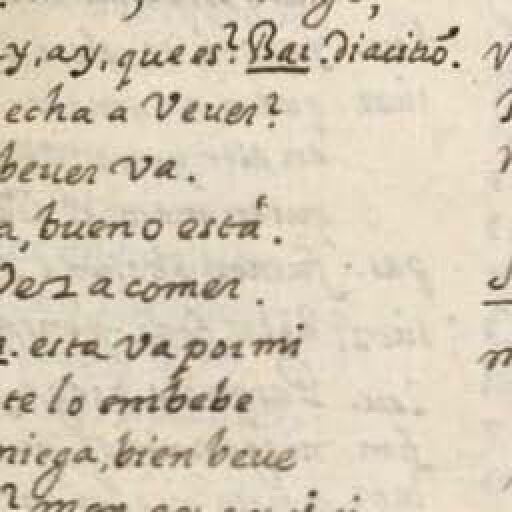 y, ay, que es? Bar. Diacitró.
echa a Veuer?
beuer va.
a, bueno está.
Dez a comer.
esta va por mi
te lo embebe
niega, bien beue